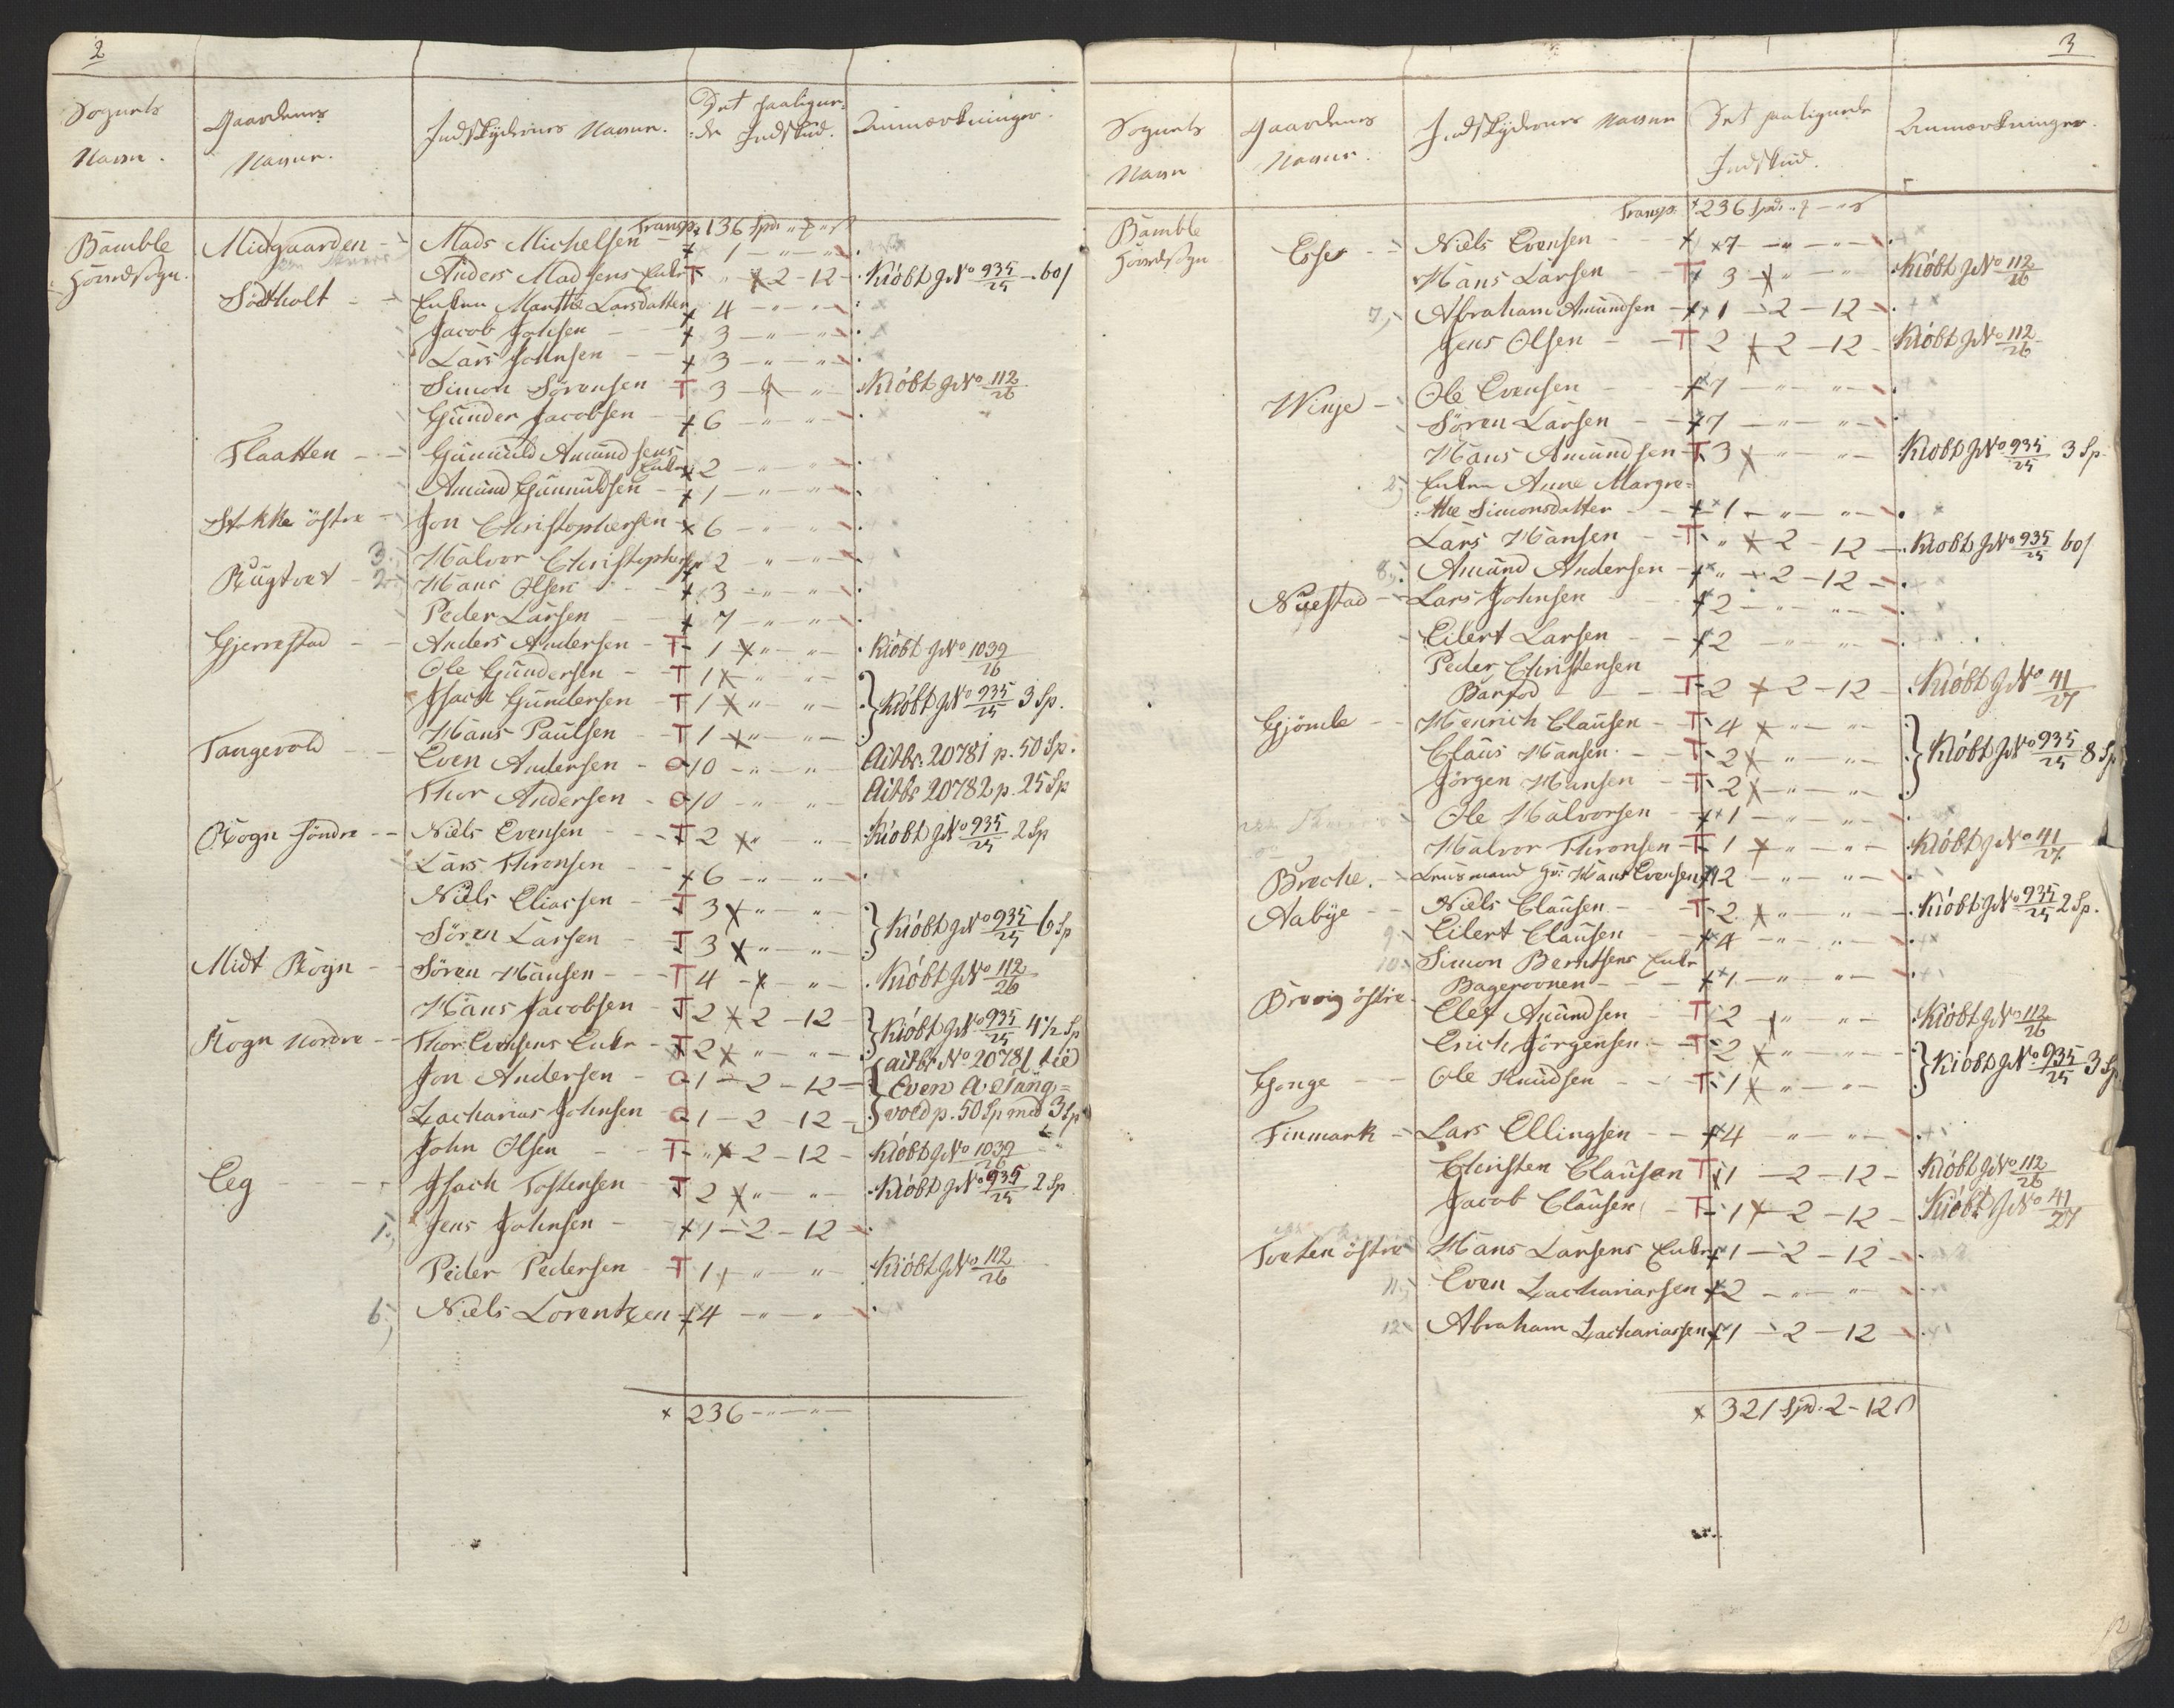 2
Sognets Navn. | Gaardenes Navne. | Indskydernes Navne. | Det paaligen: :de Indskud. | Anmærkninger.
Transp. 136 Spd. " - " -
Bamble Hovedsogn. | Midgaarden - | Mads Michelsen | 1 - " - "
Anders Madsens Enke | T " 2 - 12 | Kiöbt J No 935/25 - 60 s
Södtholt - | Enken Marthe Larsdatter | 4 - " - "
Jacob Johsen | 3 - " - "
Lars Johnsen | 3 - " - "
Simon Sörensen | T 3 - " - " | Kiöbt J No 112/26
Gunder Jacobsen | 6 - " - "
Flaatten - | Gunnuld Amundsens Enke | 2 - " - "
Amund Gunnuldsen | 1 - " - "
Stokke östre - | Jon Christophersen | 6 - " - "
3. Halvor Christophersen | 2 - " - "
Rugtvet - | 2. Hans Olsen | 3 - " - "
Peder Larsen | 7 - " - "
Gjerrestad - | Anders Andersen | T 1 - " - " | Kiöbt J No 1039/26
Ole Gundersen | T 1 - " - "
Isach Gundersen | T 1 - " - " | Kiöbt J No 935/25 3 Sp.
Hans Paulsen | T 1 - " - "
Tangevold - | Even Andersen | O 10 - " - " | Aitbr. 20781 p. 50 Sp.
Thor Andersen | O 10 - " - " | Aitbr 20782 p. 25 Sp
Rogn Söndre - | Niels Evensen | T 2 - " - " | Kiöbt J No 935/25 2 Sp
Lars Thronsen | 6 - " - "
Niels Eliassen | T 3 - " - "
Sören Larsen | T 3 - " - " | Kiöbt J No 935/25 6 Sp
Midt Rogn - | Sören Hansen | T 4 - " - " | Kiöbt J No 112/26
Hans Jacobsen | T 2 - 2 - 12
Rogn Nordre - | Thor Evensens Enke | T 2 - " - " | Kiöbt J No 935/25 4½ Sp
Jon Andersen | O 1 - 2 - 12 | aitbr No 20781 tie Even A. Tang=
Zacharias Johnsen | O 1 - 2 - 12 | vold p. 50 Sp med 3 Sp
John Olsen | T " - 2 - 12 | Kiöbt J No 1039/26
Eeg - | Isach Tostensen | T 2 - " - " | Kiöbt J No 935/25 2 Sp
1. Jens Johnsen | 1 - 2 - 12
Peder Pedersen | T 1 - " - " | Kiöbt J No 112/26
6. Niels Lorentzen | 4 - " - "
x 236 - " - "
3
Sognets Navn | Gaardenes Navne. | Indskydernes Navne | Det paaligende Indskud. | Anmærkninger.
Transp. 236 Spd. " - " -
Bamble Hovedsogn | Niels Evensen | 7 - " - "
Hans Larsen | T 3 - " - " | Kiöbt J No 112/26
7. Abraham Amundsen | 1 - 2 - 12
Jens Olsen | T 2 - 2 - 12 | Kiöbt J No 112/26
Winje - | Ole Evensen | 7 - " - "
Sören Larsen | 7 - " - "
Hans Amundsen | T 3 - " - " | Kiöbt J No 935/25 3 Sp
2. Enken Anne Margre=
:the Simonsdatter | 1 - " - "
Lars Hansen | T " - 2 - 12 | Kiöbt J No 935/25 60 s
8. Amund Andersen | " - 2 - 12
Nuestad - | Lars Johnsen | 2 - " - "
Eilert Larsen | 2 - " - "
Peder Christensen
Barfod | T 2 - 2 - 12 | Kiöbt J No 41/27
Gjömle - | Henrich Clausen | T 4 - " - "
Claus Hansen | T 2 - " - " | Kiöbt J No 935/25 8 Sp
Jörgen Hansen | T 2 - " - "
Ole Halvorsen | 1 - " - "
Halvor Thronsen | T 1 - " - " | Kiöbt J No 41/27
Breche. - | Lensmand Hr: Hans Evensen | 12 - " - "
Aabÿe - | Niels Clausen | T 2 - " - " | Kiöbt J No 935/25 2 Sp.
9. Eilert Clausen | 4 - " - "
10. Simon Berntsens Enke
Bagerovnen | 1 - " - "
Brevig östre - | Elef Amundsen | T 2 - " - " | Kiöbt J No 112/26
Erich Jörgensen | T 2 - " - " | Kiöbt J No 935/25 3 Sp
Gonge - | Ole Knudsen | T 1 - " - "
Finmark - | Lars Ellingsen | 4 - " - "
Christen Clausen | T 1 - 2 - 12 | Kiöbt J No 112/26
Jacob Clausen | T 1 - 2 - 12 | Kiöbt J No 41/27
Tveten östre | Hans Larsens Enke | 1 - 2 - 12
11. Even Zachariassen | 2 - " - "
12. Abraham Zachariassen | 1 - 2 - 12
x 321 Spd. 2 - 12 s